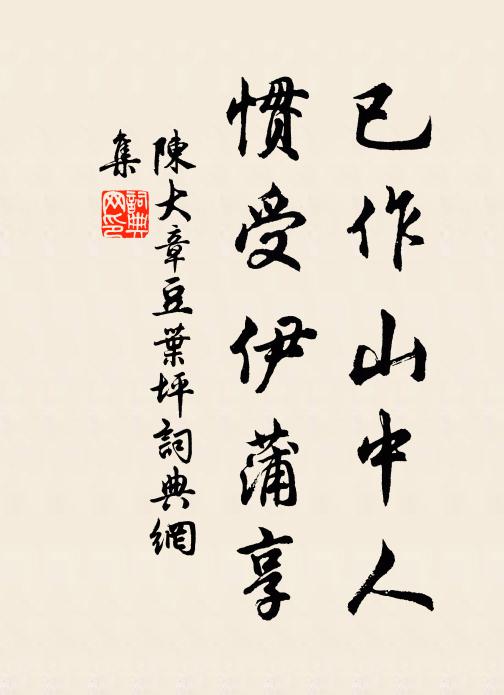 已作山中人
慣受伊蒲享
陳大章豆葉坪詞典網
集
詞典
网印